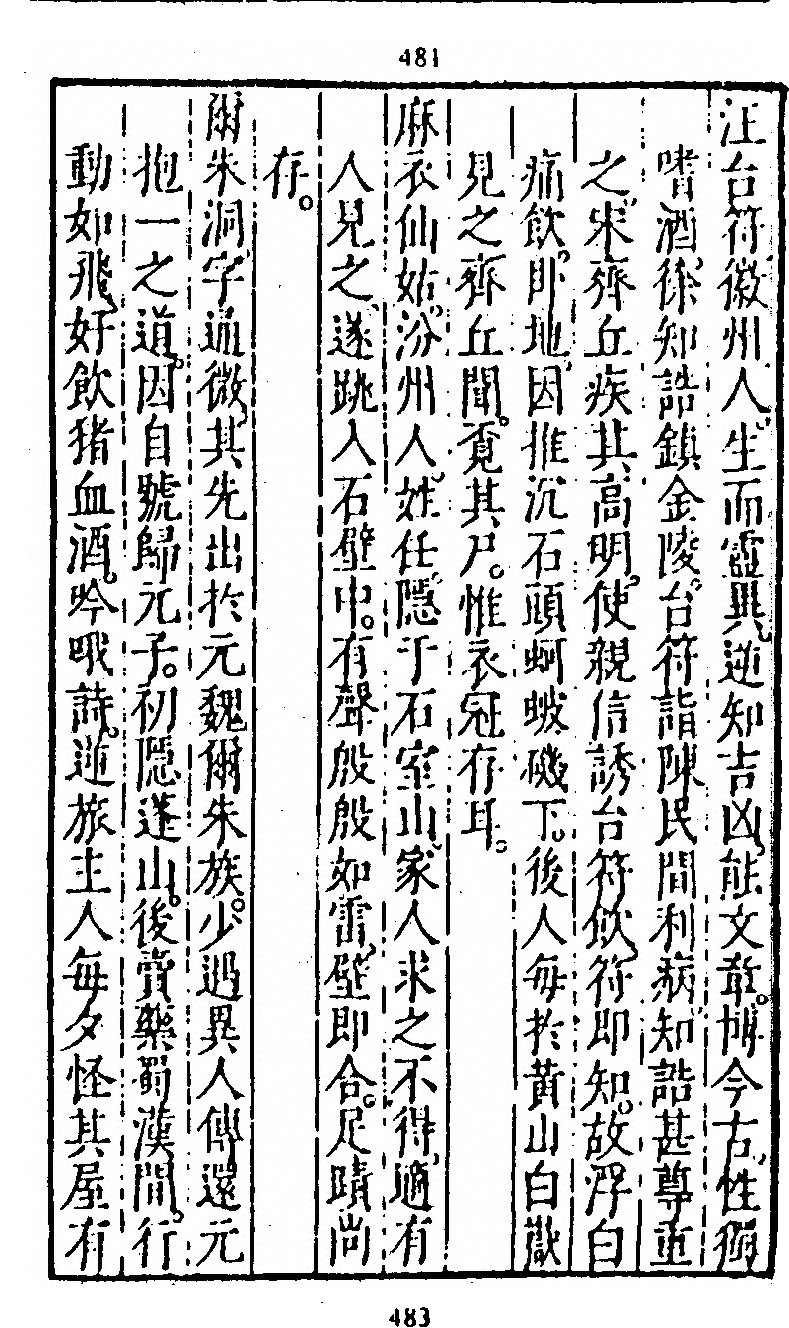 481
汪台符徽州人生而靈異逆知吉凶能文章。博今古性獨
嗜酒徐知誥鎮金陵。台符詣陳民間利病知誥甚尊重
之宋齊丘疾其高明使親信誘台符飲符即知。故浮白
痛飲即地因推沉石頭蚵蚾磯下。後人每於黃山白嶽
見之齊丘聞。覓其尸。惟衣冠存耳。
麻衣仙姑。汾州人姓任隱于石室山家人求之不得適有
人見之遂跳入石壁中。有聲殷殷如雷壁即合。足蹟尚
存。
爾朱洞字通微其先出於元魏爾朱族。少遇異人傳還元
抱一之道。因自號歸元子。初隱蓬山。後賣藥蜀漢間。行
動如飛好飲猪血酒。吟哦詩。逆旅主人每夕怪其屋有
483